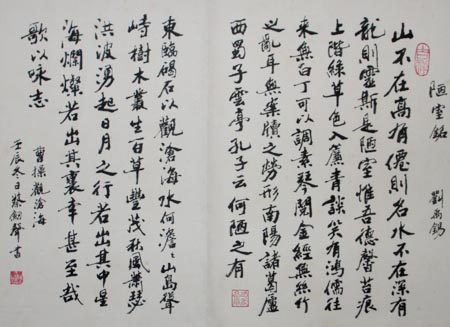 陋室銘 劉禹錫
山不在高有僊則名水不在深有
龍則靈斯是陋室惟吾德馨苔痕
上階綠草色入簾青談笑有鴻儒往
來無白丁可以調素琴閱金經無絲竹
之亂耳無案牘之勞形南陽諸葛廬
西蜀子雲亭孔子云何陋之有
東臨碣石以觀滄海水何澹〻山島聳
峙樹木叢生百草豐茂秋風蕭瑟
洪波湧起日月之行若出其中星
海爛燦若出其裏幸甚至哉
歌以咏志
曹操觀滄海
壬辰冬日蔡劍聲書